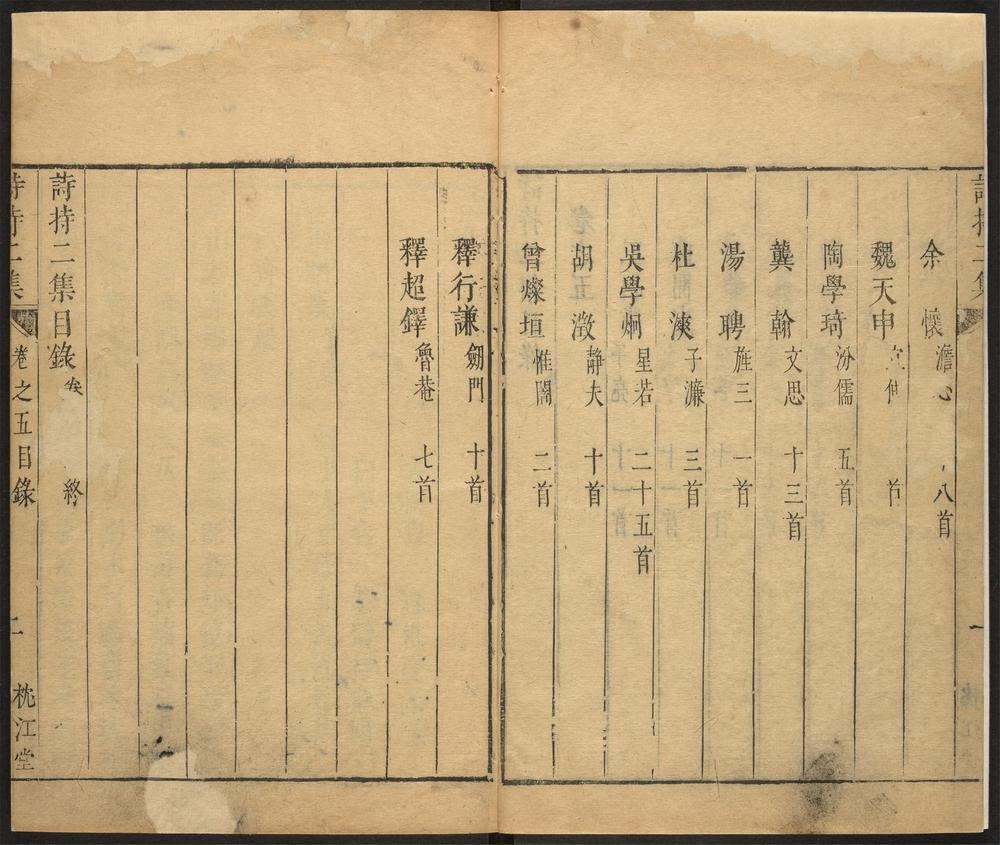 詩持二集 一
余 懷 澹心 八首
魏天申 首
陶學琦 汾儒 五首
龔 翰 文思 十三首
湯 聘 旌三 一首
杜 漺 子濂 三首
吳學炯 星若 二十五首
胡 澂 靜夫 十首
曾燦垣 惟闇 二首
釋行謙 劒門 十首
釋超鐸 魯菴 七首
詩持二集目錄 終
詩持二集 卷之五目錄 二 枕江堂